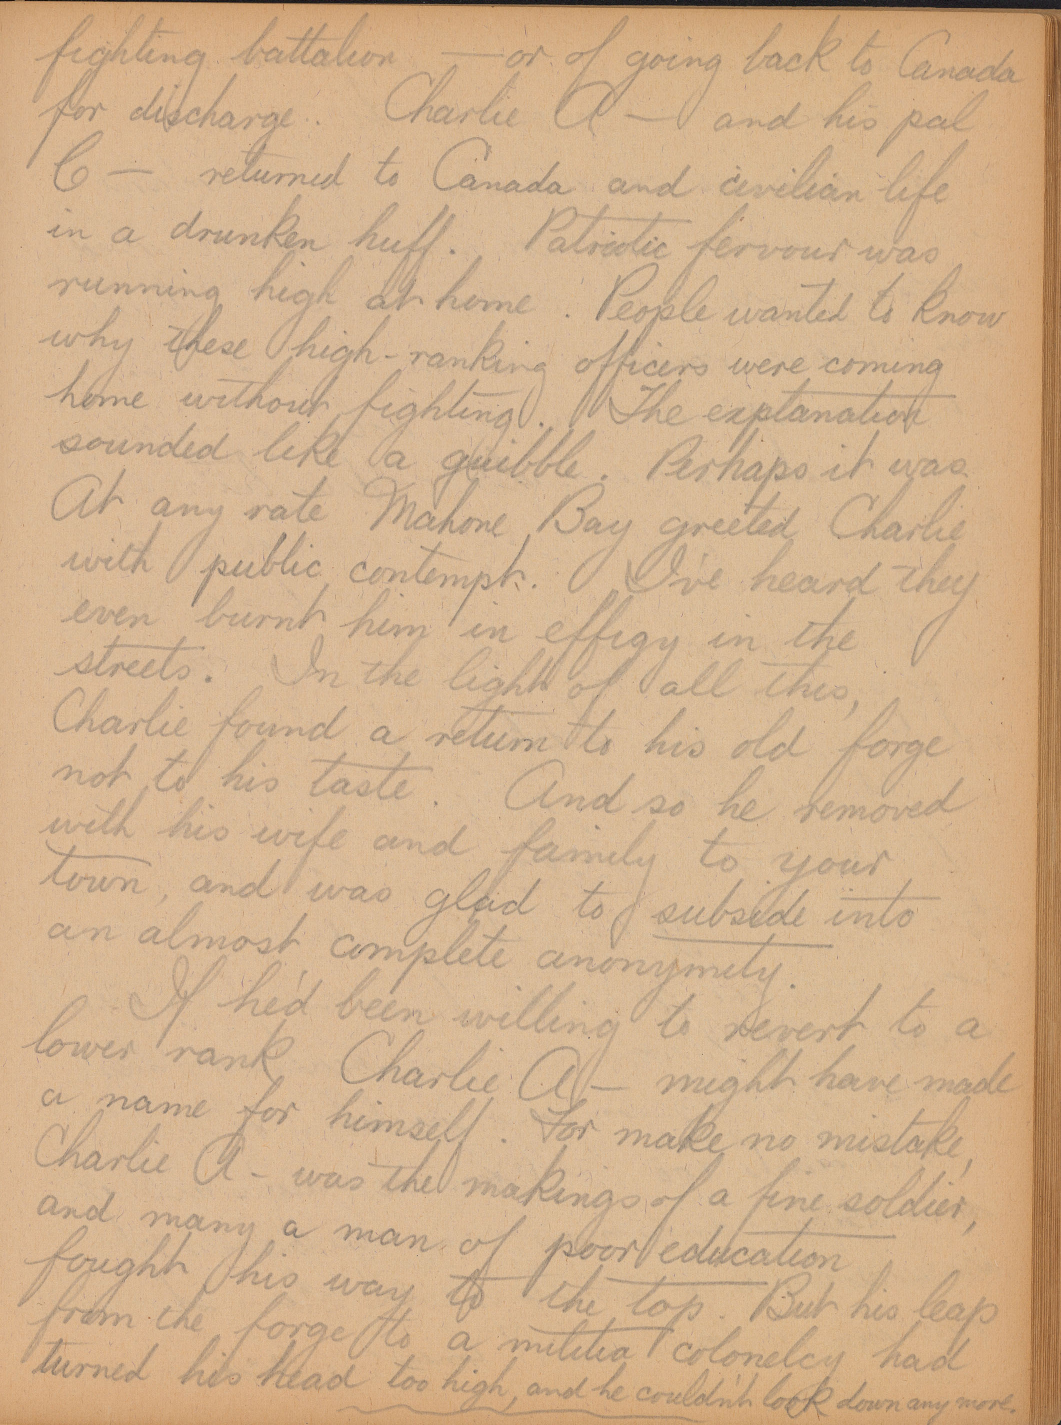 fighting battalion — or of going back to Canada
for discharge. Charlie A — and his pal
C — returned to Canada and civilian life
in a drunken huff. Patriotic fervour was
running high at home. People wanted to know
why these high-ranking officers were coming
home without fighting. The explanation
sounded like a quibble. Perhaps it was.
At any rate Mahone Bay greeted Charlie
with public contempt. I've heard they
even burnt him in effigy in the
streets. In the light of all this,
Charlie found a return to his old forge
not to his taste. And so he removed
with his wife and family to your
town, and was glad to subside into
an almost complete anonymity.
If he'd been willing to revert to a
lower rank Charlie A — might have made
a name for himself. For make no mistake,
Charlie A - was the makings of a fine soldier,
and many a man of poor education
fought his way to the top. But his leap
from the forge to a militia colonelcy had
turned his head too high, and he couldn't look down any more.